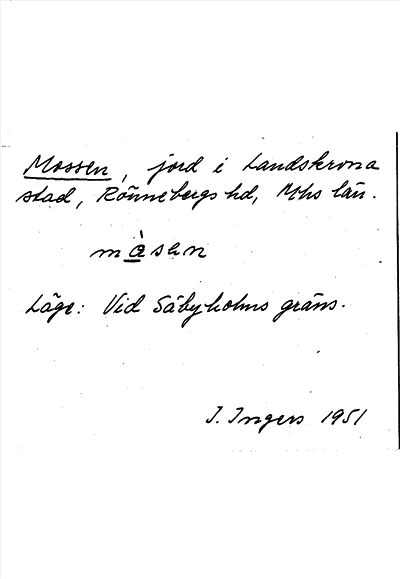 Mossen, jord i Landskrona
stad, Rönnebergs hd, Mhs län.
m&#224;sen
Läge: Vid Säbyholms gräns.
I. Ingers 1951